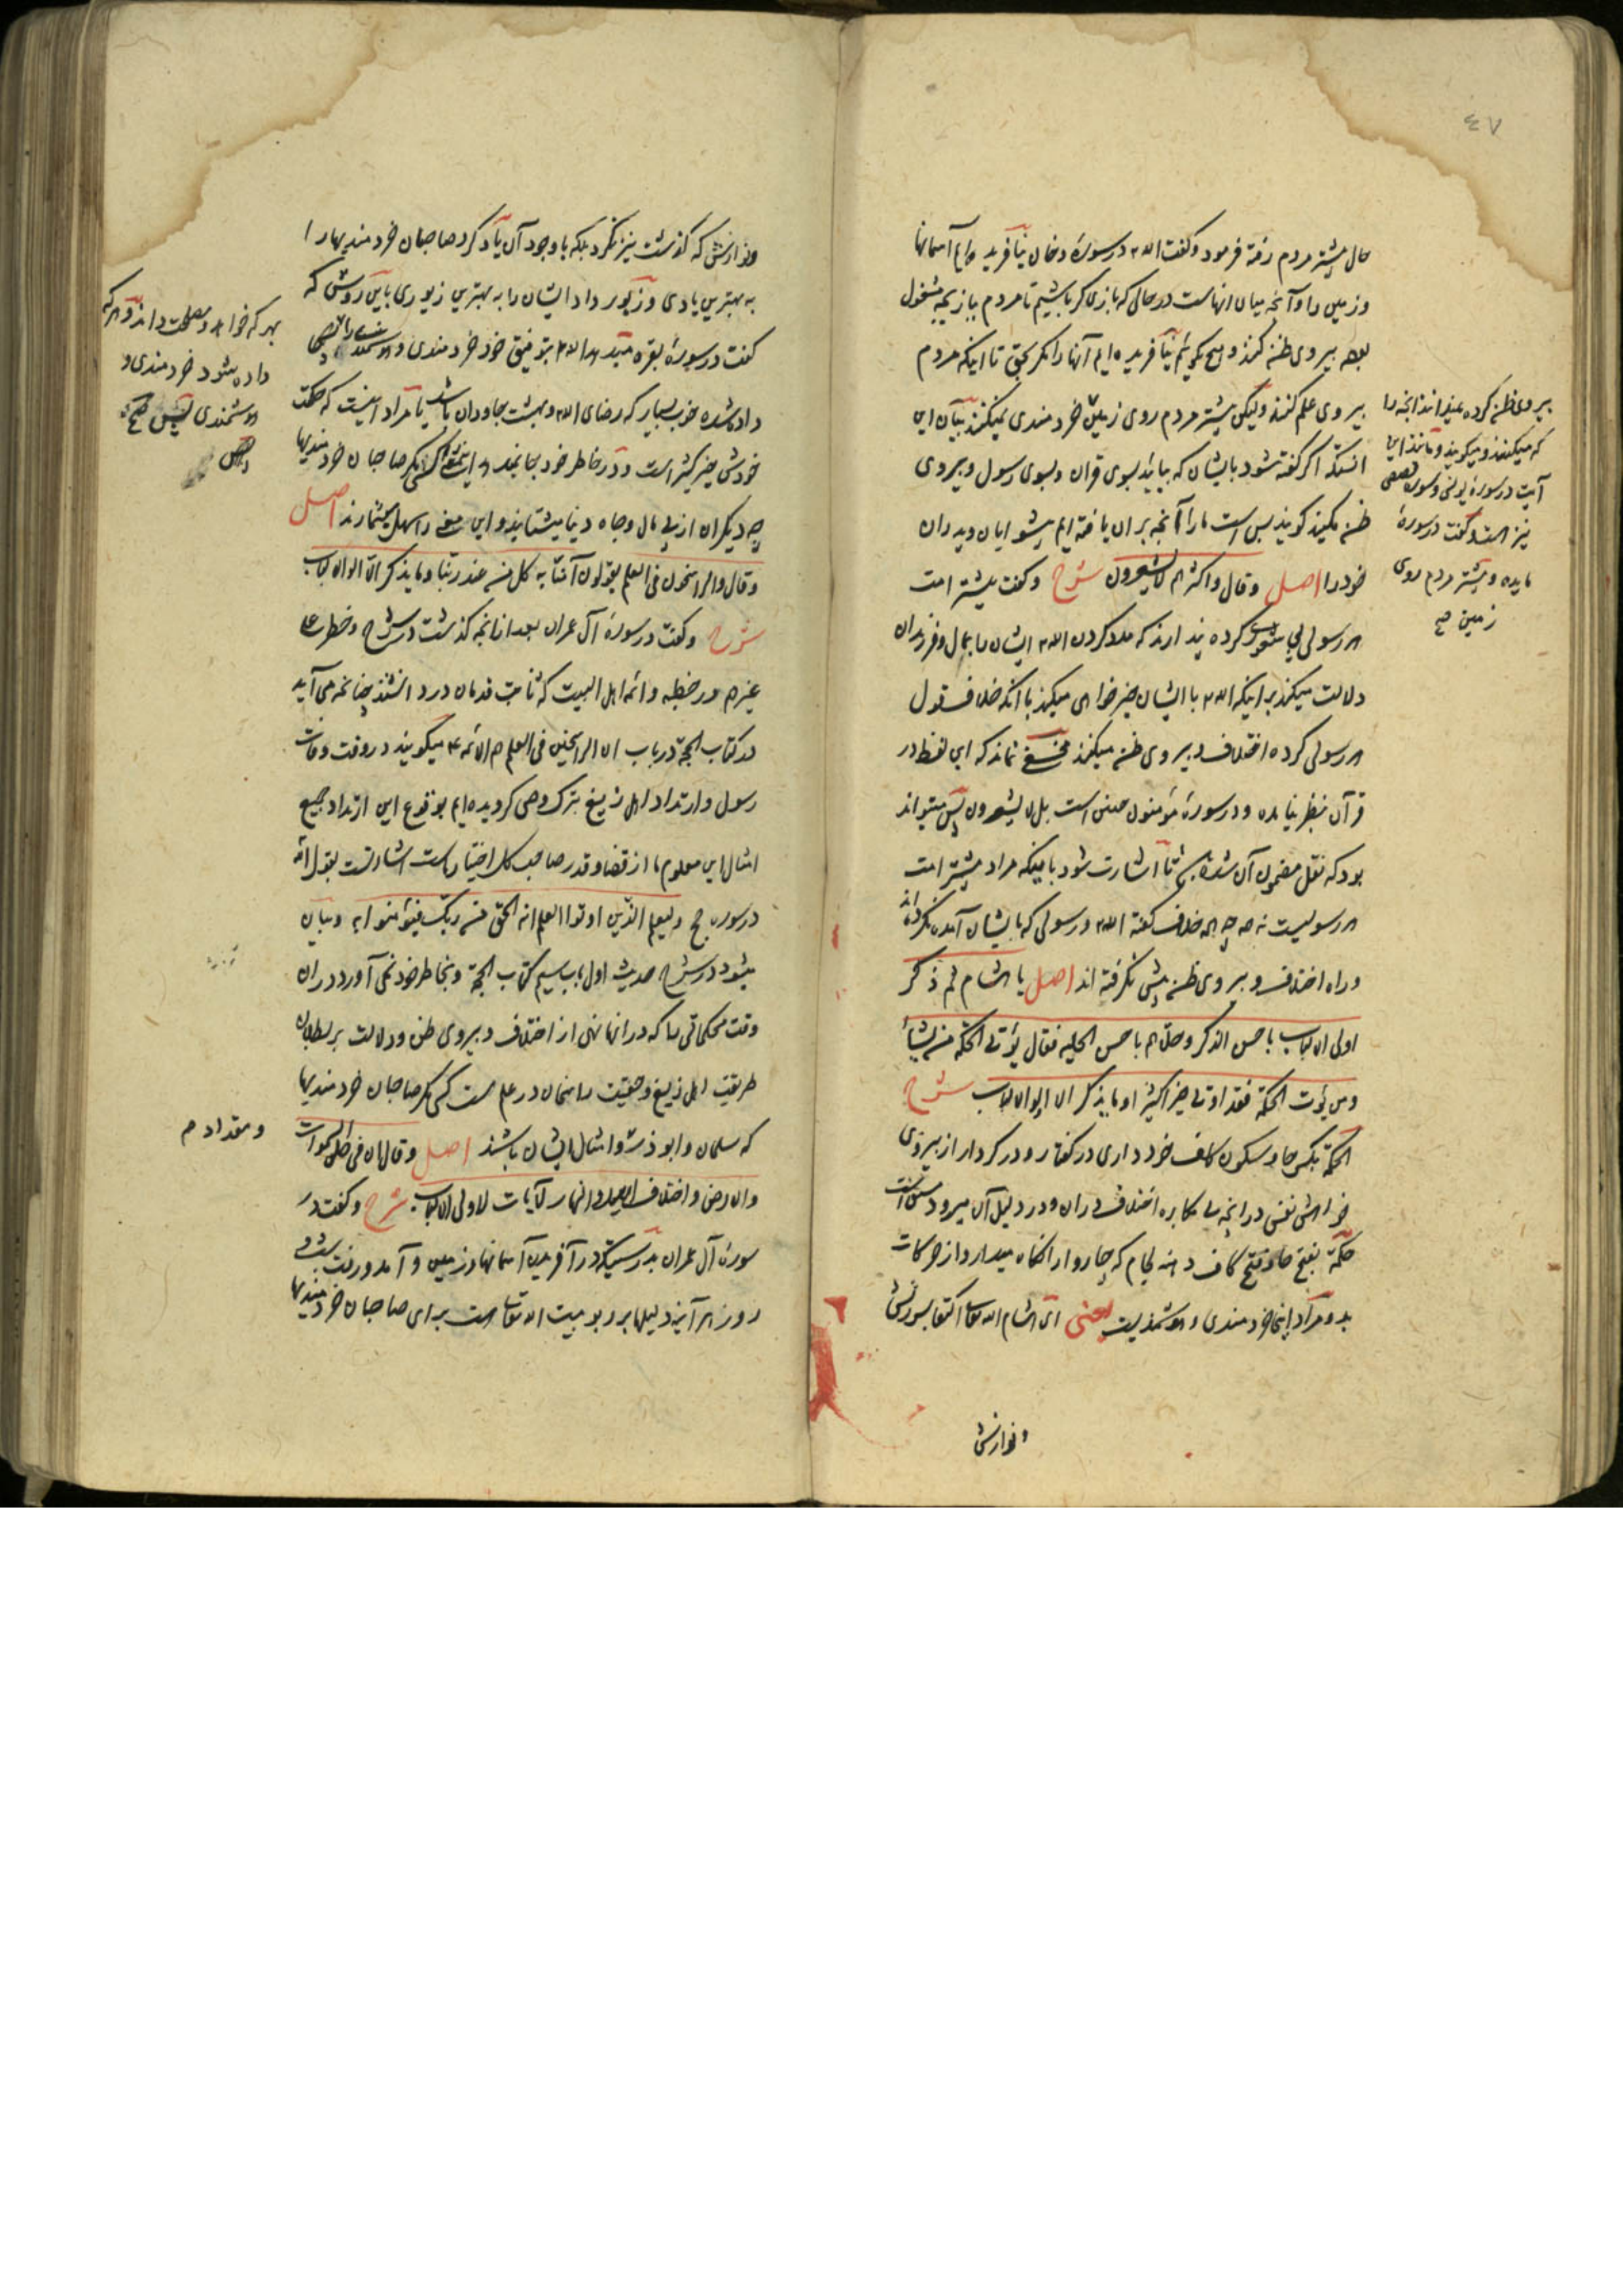 ٤٧
حال بیشتر مردم رفته فرمود و گفت الله تع در سورهٔ دخان نیافریده ایم آسمانها
و زمین را و آنچه میان آنهاست در حالی که بازی گر باشیم تا مردم ببازیچه مشغول
بوده پیروی ظن کنند و هیچ نگوییم نیافریده ایم آنها را مگر بحق تا اینکه مردم
پیروی علم کنند ولیکن بیشتر مردم روی زمین خردمندی نمیکنند بیان این
آنستکه اگر گفته شود بایشان که بیایید بسوی قران و بسوی رسول و پیروی
ظن مکنید گویند بس است ما را آنچه بر ان یافته ایم پیشوایان و پدران
خود را اصل وقال واکثرهم لا یشعرون شرح و گفت بیشتر امت
هر رسولی بی شعورند کرده پندارند که مدد کردن الله تع ایشان را بمال و فرزندان
دلالت میکند بر اینکه الله تع با ایشان خیر خواهی میکند با آنکه خلاف قول
هر رسولی کرده اختلاف و پیروی ظن میکنند مخفی نماند که این لفظ در
قرآن بنظر نیامده و در سورهٔ مؤمنون چنین است بل لا یشعرون پس میتواند
بود که نقل مضمون آن شده باشد تا اشارت شود باینکه مراد بیشتر امت
هر رسولیست نه همه چه همه خلاف گفته الله تع و رسولی که بایشان آمده نکرده اند
و راه اختلاف و پیروی ظن پیش نگرفته اند اصل یا هشام ثم ذکر
اولی الالباب باحسن الذکر وحلاهم باحسن الحلیه فقال یؤتی الحکمة من یشاء
ومن یؤت الحکمة فقد اوتی خیرا کثیرا وما یذکر الا اولوا الالباب شرح
الحکمة بکسر حا و سکون کاف خود داری در گفتار و در کردار از پیروی
خواهش نفس در آنچه بی مکابره اختلاف در ان و در دلیل آن میرود مشتق است
حکمة بفتح حا و فتح کاف دهنه لجام که چاروا را نگاه میدارد از حرکات
بد و مراد اینجا خردمندی و هوشمندیست یعنی ای هشام الله تعالی اکتفا بسرزنش
و نوازش
پیروی ظن کرده میدانند آنچه را
که میکنند و میگویند و مانند این
آیت در سورهٔ یونس و سوره قصص
نیز هست و گفت در سورهٔ
مایده و بیشتر مردم روی
زمین صح
و نوازش که گذشت نیز نکرد بلکه باوجود آن یاد کرد صاحبان خردمندیها را
به بهترین یادی و زیور داد ایشان را به بهترین زیوری باین روش که
گفت در سورهٔ بقره میدهد الله تع بتوفیق خود خردمندی و هوشمندی را
داده شده خوب بسیار که رضای الله و بهشت جاودان باشد یا مراد اینست که حکمت
خودش خیر کثیر است و در خاطر خود بجا نمیدهد این سخن را کسی مگر صاحبان خردمندیها
چه دیگران از پی مال و جاه دنیا میشتابند و این معنی را سهل میشمارند اصل
وقال والراسخون فی العلم یقولون آمنا به کل من عند ربنا وما یذکر الا اولوا الالباب
شرح و گفت در سورهٔ آل عمران بعد از آنچه گذشت در شرح و خطر علی
غیرهم در خطبه و ائمه اهل البیت که ثابت قدمان در دانشند چنانچه می آید
در کتاب الحجة در باب ان الراسخین فی العلم هم الائمه ع میگویند در وقت وفات
رسول و ارتداد اهل زیغ بترک وصی گرویده ایم بوقوع این ارتداد جمیع
امثال این معلوم ما از قضا و قدر صاحب کل اختیار ماست اشارتست بقول الله
در سوره حج ولیعلم الذین اوتوا العلم انه الحق من ربک فیؤمنوا به و بیان
میشود در شرح حدیث اول باب سیم کتاب الحجة و بخاطر خود نمی آورد در ان
وقت محکماتی را که در انها نهی از اختلاف و پیروی ظن و دلالت بر بطلان
طریقت اهل زیغ و حقیت راسخان در علم هست کسی مگر صاحبان خردمندیها
که سلمان و ابوذر و امثال ایشان باشند اصل وقال ان فی خلق السموات
والارض واختلاف اللیل والنهار لآیات لاولی الالباب شرح و گفت در
سورهٔ آل عمران بدرستیکه در آفریدن آسمانها و زمین و آمد و رفت شب و
روز هر آینه دلیلها بر ربوبیت الله تعالی هست برای صاحبان خردمندیها
بهر که خواهد و مصلحت داند و هر که
داده شود خردمندی و
هوشمندی پس
و مقداد م